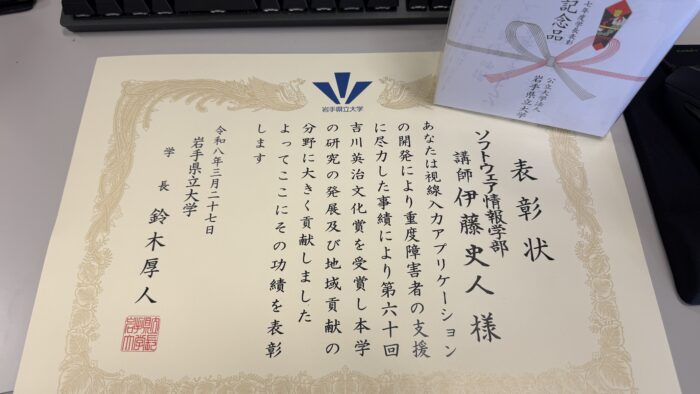 表彰状
ソフトウェア情報学部
講師 伊藤史人 様
あなたは視線入力アプリケーション
の開発により重度障害者の支援
に尽力した事績により第六十回
吉川英治文化賞を受賞し本学
の研究の発展及び地域貢献の
分野に大きく貢献しました
よってここにその功績を表彰
します
令和八年三月二十七日
岩手県立大学
学長 鈴木厚人
岩手県立大学
七年度学長表彰
記念品
公立大学法人
岩手県立大学